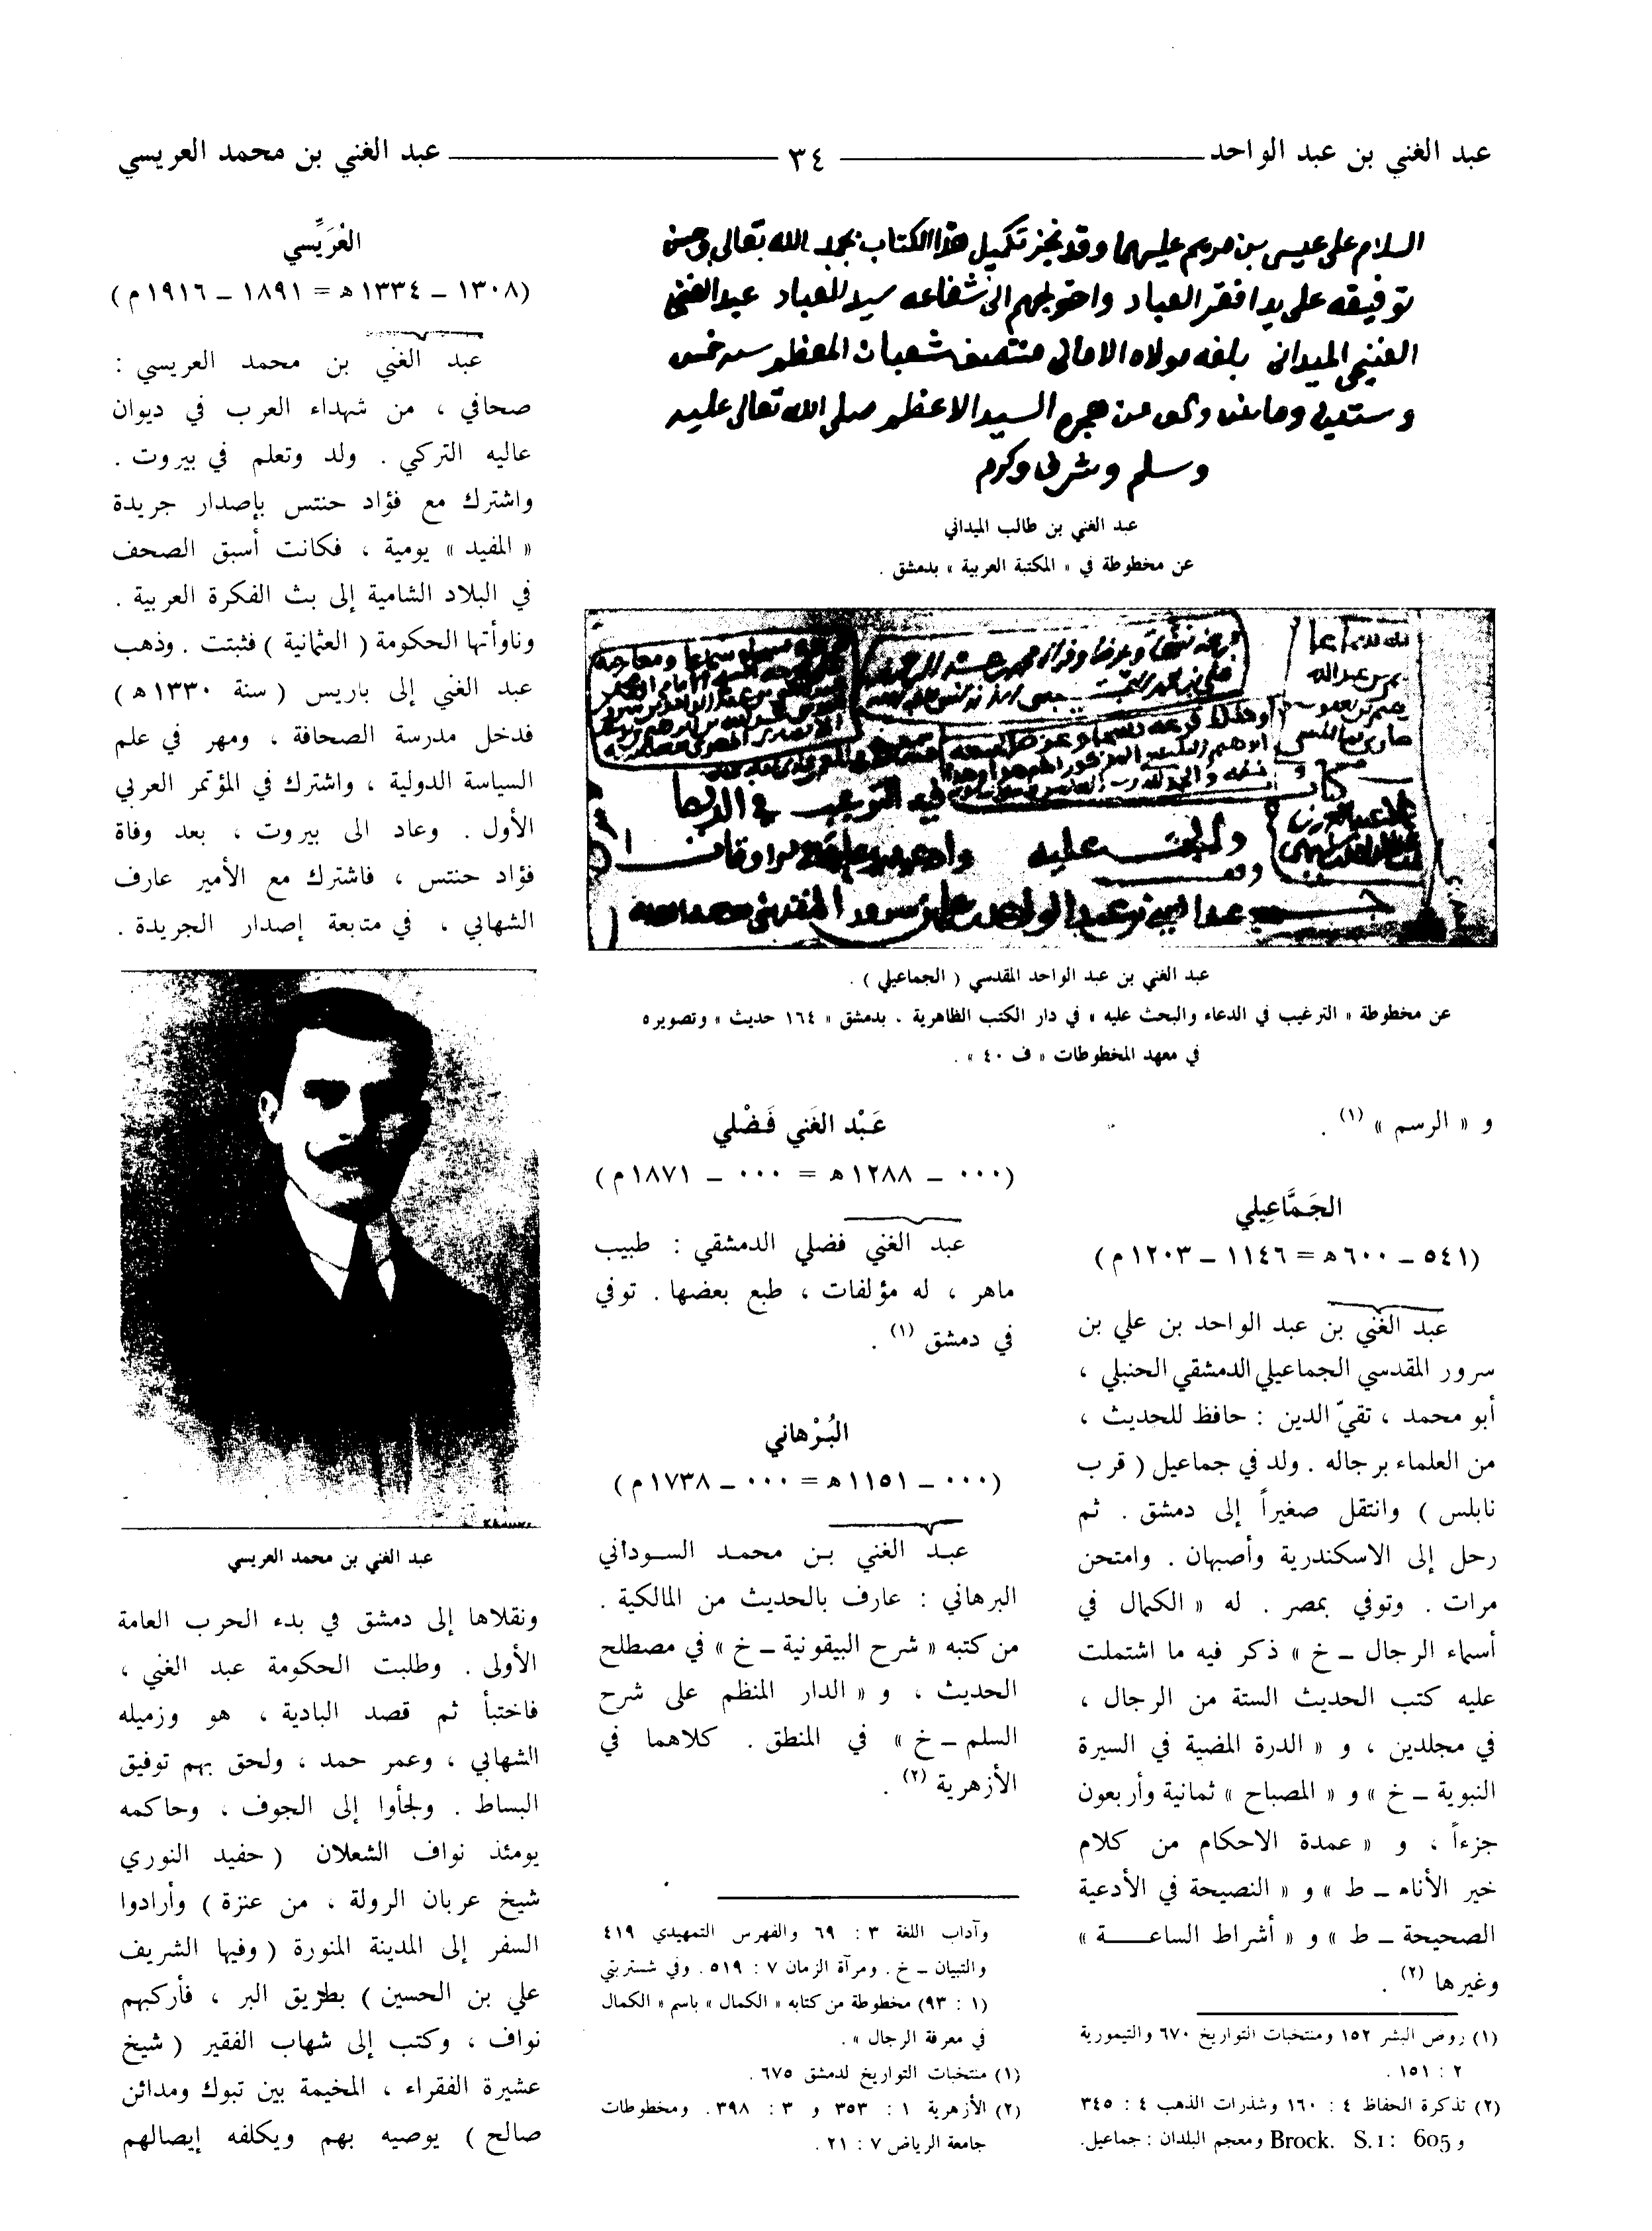 عبد الغني بن عبد الواحد ـــ ٣٤ ـــ عبد الغني بن محمد العريسي
السلام على عيسى بن مريم عليهما وقد نجز تكميل هذا الكتاب بحمد الله تعالى وحسن
توفيقه على يد افقر العباد واحوجهم الى شفاعه سيد العباد عبد الغني
الغنيمي الميداني بلغه مولاه الاماني منتصف شعبان المعظم سنة خمس
وستين ومايتين والف من هجرة السيد الاعظم صلى الله تعالى عليه
وسلم وشرف وكرم
عبد الغني بن طالب الميداني
عن مخطوطة في « المكتبة العربية » بدمشق .
عبد الغني بن عبد الواحد المقدسي ( الجماعيلي ) .
عن مخطوطة « الترغيب في الدعاء والبحث عليه » في دار الكتب الظاهرية . بدمشق « ١٦٤ حديث » وتصويره
في معهد المخطوطات « ف ٤٠ » .
و « الرسم » (١) .
الجَمَّاعِيلي
(٥٤١ ـ ٦٠٠ هـ = ١١٤٦ ـ ١٢٠٣ م)
عبد الغني بن عبد الواحد بن علي بن
سرور المقدسي الجماعيلي الدمشقي الحنبلي ،
أبو محمد ، تقيّ الدين : حافظ للحديث ،
من العلماء برجاله . ولد في جماعيل ( قرب
نابلس ) وانتقل صغيراً إلى دمشق . ثم
رحل إلى الاسكندرية وأصبهان . وامتحن
مرات . وتوفي بمصر . له « الكمال في
أسماء الرجال ـ خ » ذكر فيه ما اشتملت
عليه كتب الحديث الستة من الرجال ،
في مجلدين ، و « الدرة المضية في السيرة
النبوية ـ خ » و « المصباح » ثمانية وأربعون
جزءاً ، و « عمدة الاحكام من كلام
خير الأنام ـ ط » و « النصيحة في الأدعية
الصحيحة ـ ط » و « أشراط الساعـــة »
وغيرها (٢) .
(١) روض البشر ١٥٢ ومنتخبات التواريخ ٦٧٠ والتيمورية
٢ : ١٥١ .
(٢) تذكرة الحفاظ ٤ : ١٦٠ وشذرات الذهب ٤ : ٣٤٥
و Brock. S. I : 605 ومعجم البلدان : جماعيل.
عَبْد الغَني فَضْلي
(٠٠٠ ـ ١٢٨٨ هـ = ٠٠٠ ـ ١٨٧١ م)
عبد الغني فضلي الدمشقي : طبيب
ماهر ، له مؤلفات ، طبع بعضها . توفي
في دمشق (١) .
البُرْهاني
(٠٠٠ ـ ١١٥١ هـ = ٠٠٠ ـ ١٧٣٨ م)
عبـد الغني بـن محمـد السـوداني
البرهاني : عارف بالحديث من المالكية .
من كتبه « شرح البيقونية ـ خ » في مصطلح
الحديث ، و « الدار المنظم على شرح
السلم ـ خ » في المنطق . كلاهما في
الأزهرية (٢) .
وآداب اللغة ٣ : ٦٩ والفهرس التمهيدي ٤١٩
والتبيان ـ خ . ومرآة الزمان ٧ : ٥١٩ . وفي شستربتي
(١ : ٩٣) مخطوطة من كتابه « الكمال » باسم « الكمال
في معرفة الرجال » .
(١) منتخبات التواريخ لدمشق ٦٧٥ .
(٢) الأزهرية ١ : ٣٥٣ و ٣ : ٣٩٨ . ومخطوطات
جامعة الرياض ٧ : ٢١ .
العُرَيِّسي
(١٣٠٨ ـ ١٣٣٤ هـ = ١٨٩١ ـ ١٩١٦ م)
عبد الغني بن محمد العريسي :
صحافي ، من شهداء العرب في ديوان
عاليه التركي . ولد وتعلم في بيروت .
واشترك مع فؤاد حنتس بإصدار جريدة
« المفيد » يومية ، فكانت أسبق الصحف
في البلاد الشامية إلى بث الفكرة العربية .
وناوأتها الحكومة ( العثمانية ) فثبتت . وذهب
عبد الغني إلى باريس ( سنة ١٣٣٠ هـ )
فدخل مدرسة الصحافة ، ومهر في علم
السياسة الدولية ، واشترك في المؤتمر العربي
الأول . وعاد الى بيروت ، بعد وفاة
فؤاد حنتس ، فاشترك مع الأمير عارف
الشهابي ، في متابعة إصدار الجريدة .
عبد الغني بن محمد العريسي
ونقلاها إلى دمشق في بدء الحرب العامة
الأولى . وطلبت الحكومة عبد الغني ،
فاختبأ ثم قصد البادية ، هو وزميله
الشهابي ، وعمر حمد ، ولحق بهم توفيق
البساط . ولجأوا إلى الجوف ، وحاكمه
يومئذ نواف الشعلان ( حفيد النوري
شيخ عربان الرولة ، من عنزة ) وأرادوا
السفر إلى المدينة المنورة ( وفيها الشريف
علي بن الحسين ) بطريق البر ، فأركبهم
نواف ، وكتب إلى شهاب الفقير ( شيخ
عشيرة الفقراء ، المخيمة بين تبوك ومدائن
صالح ) يوصيه بهم ويكلفه إيصالهم